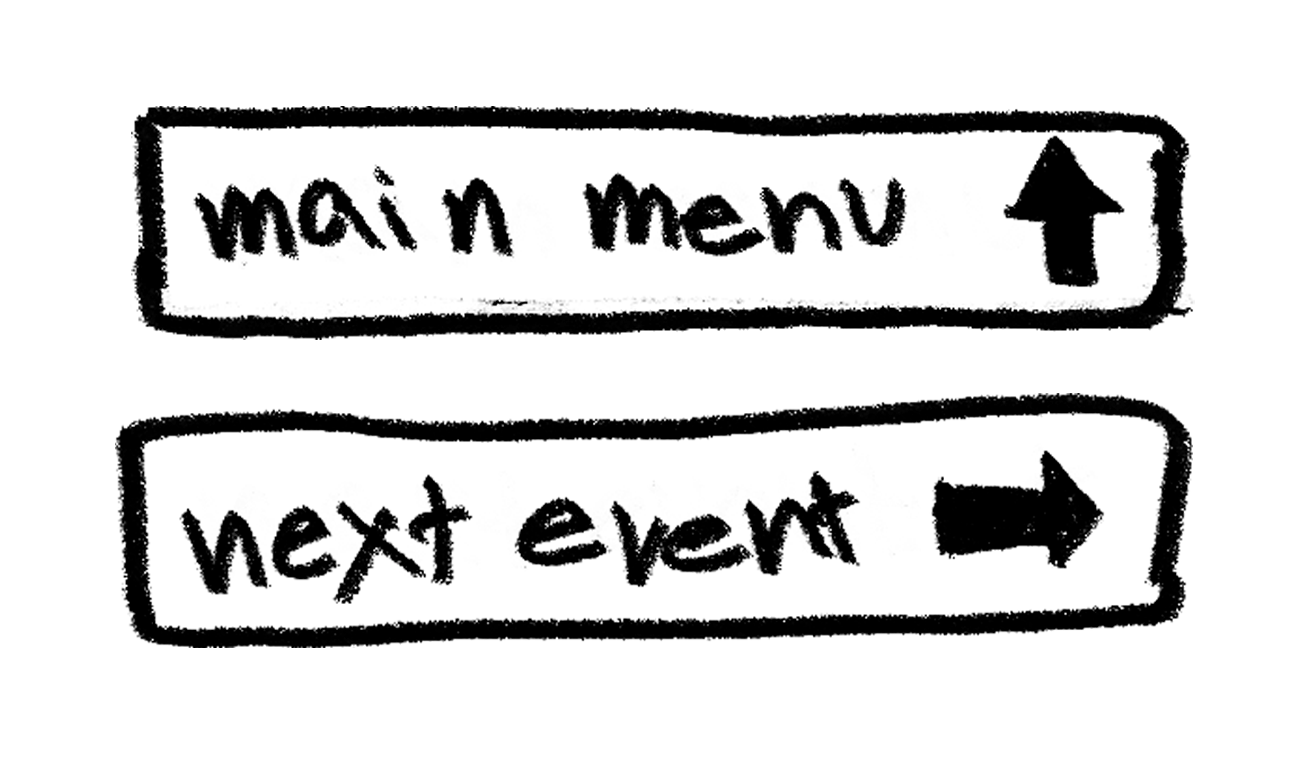 main menu
next event